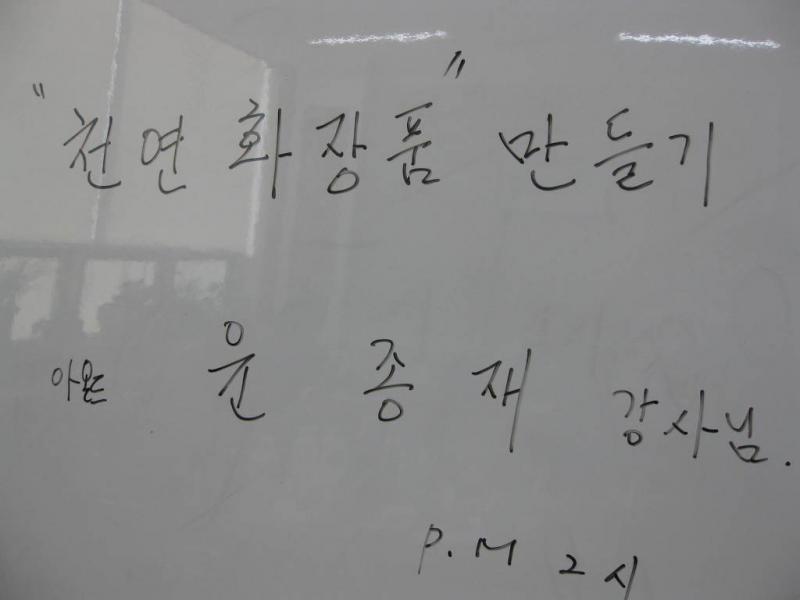 "천연 화장품" 만들기
윤 종 재 강사님.
P.M 2시